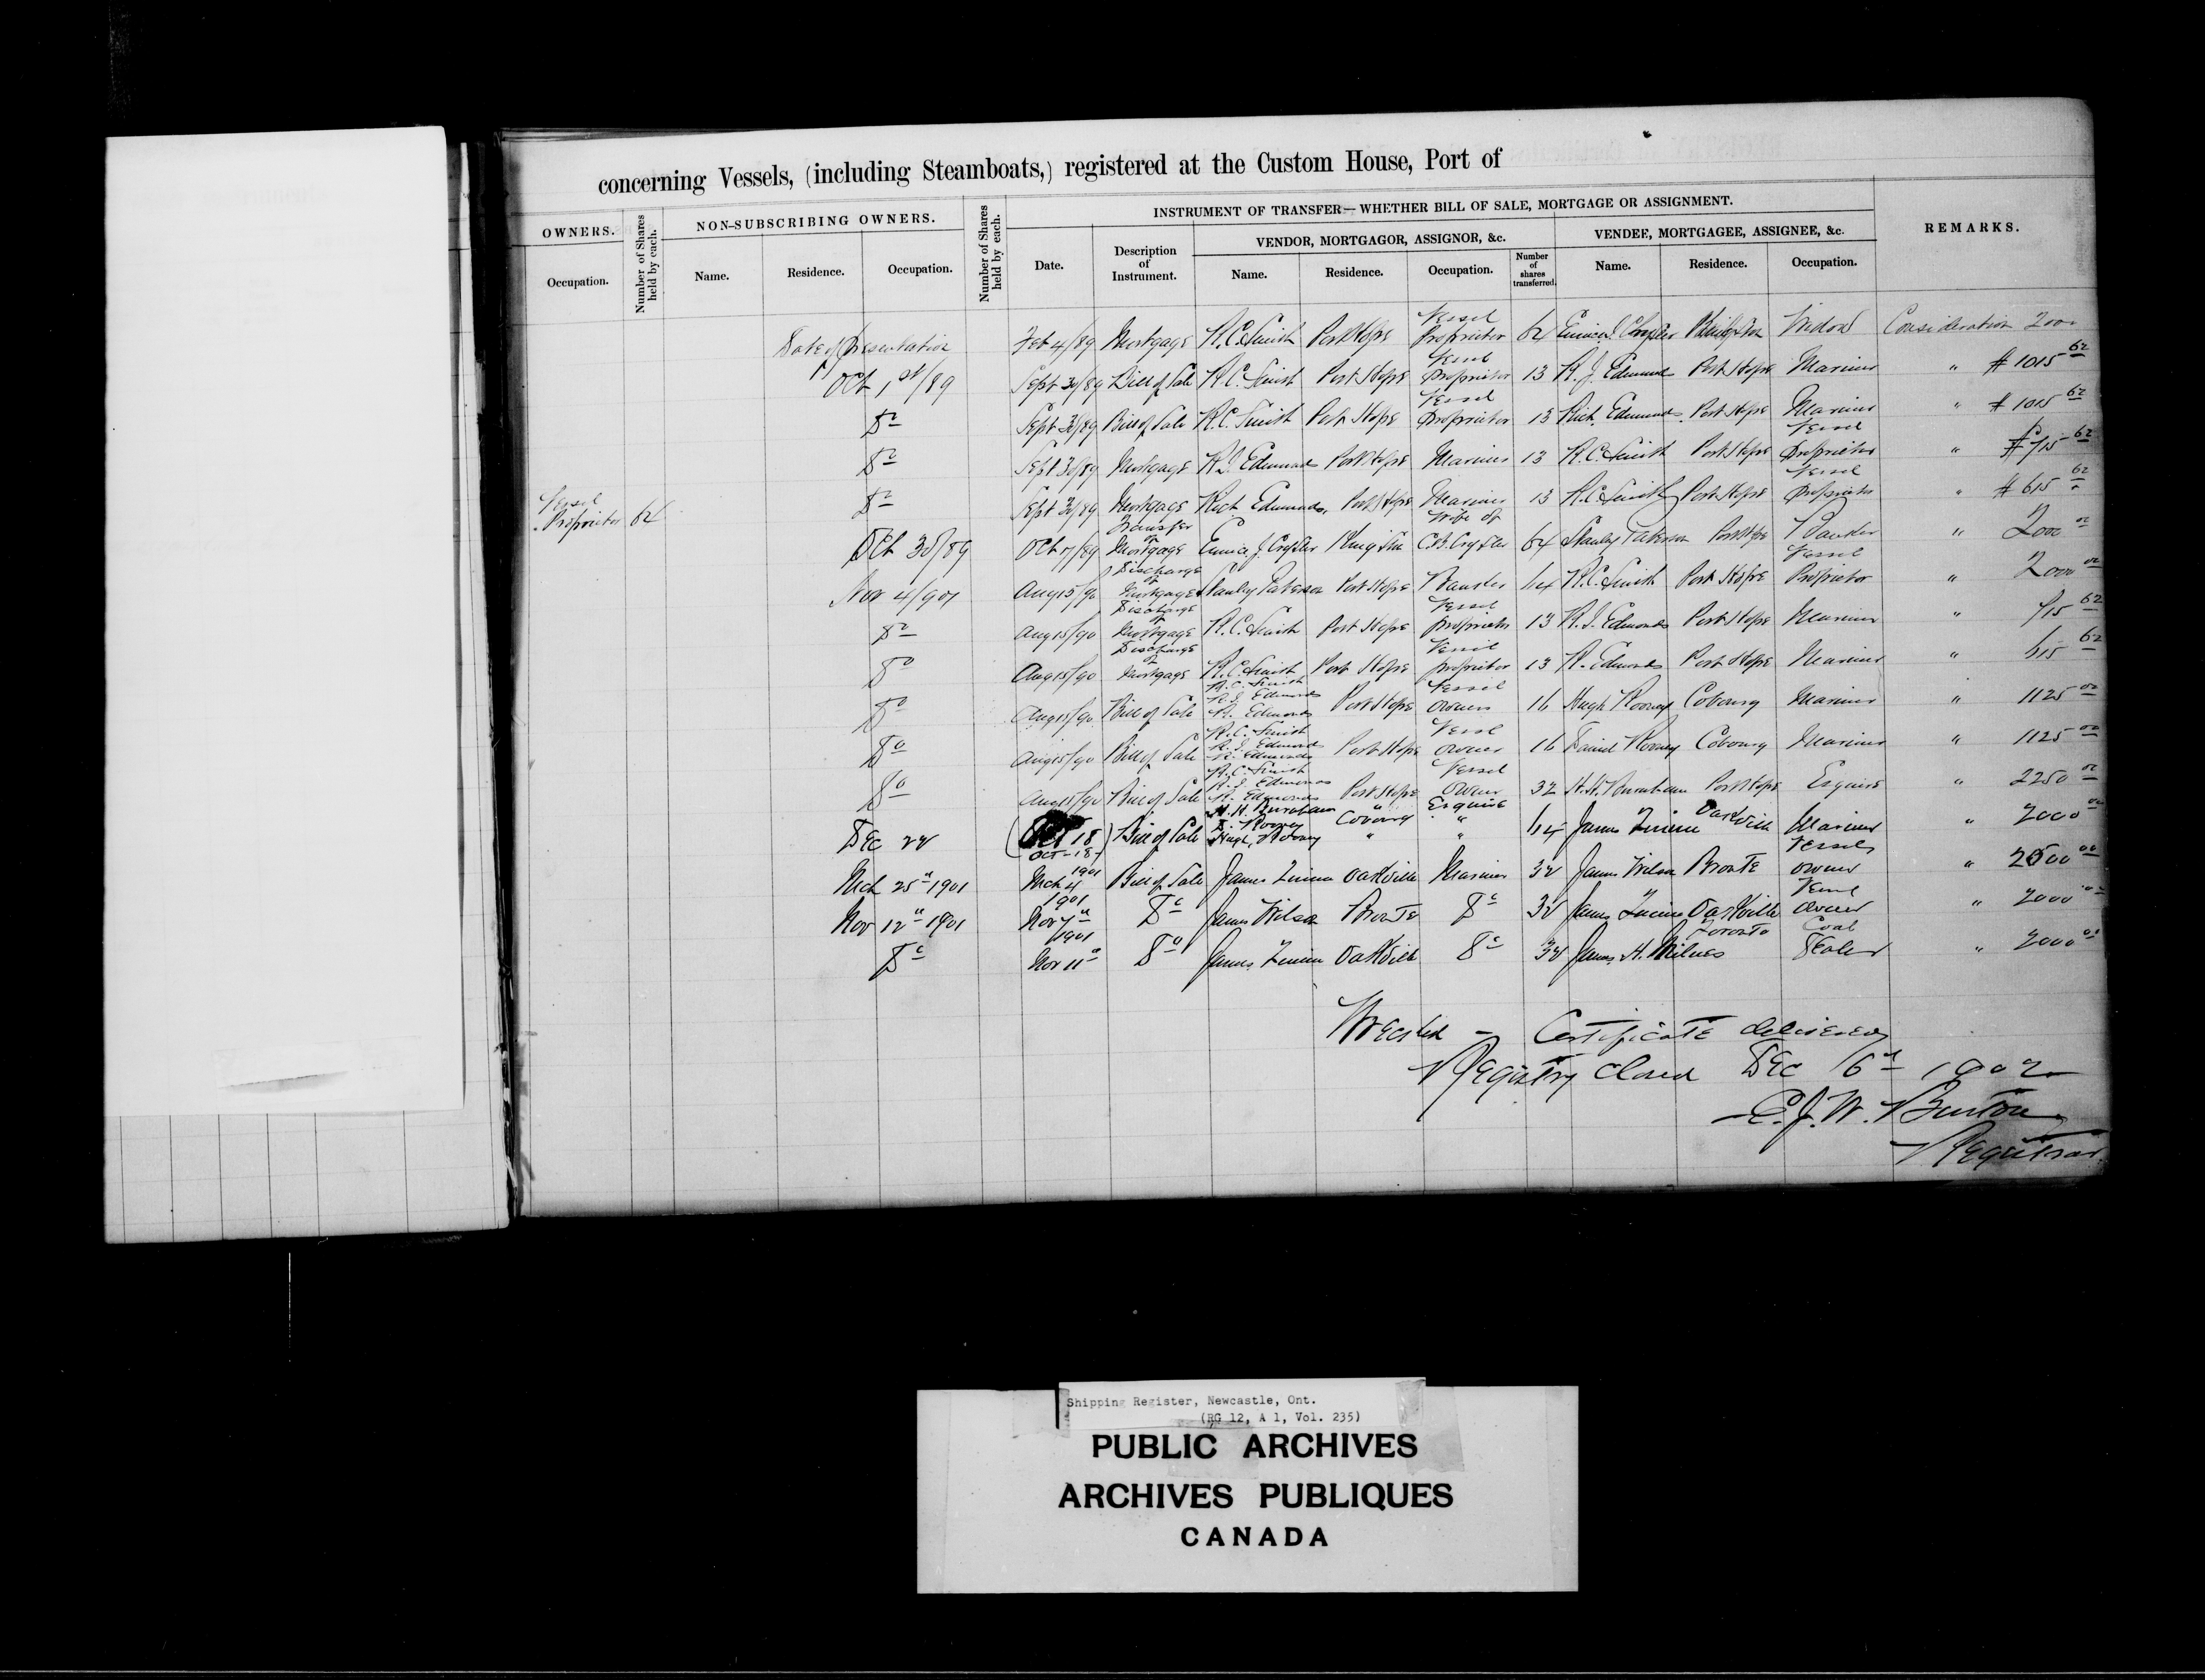 concerning Vessels, (including Steamboats,) registered at the Custom House, Port of
OWNERS.
Number of Shares held by each.
NON-SUBSCRIBING OWNERS.
Number of Shares held by each.
INSTRUMENT OF TRANSFER—WHETHER BILL OF SALE, MORTGAGE OR ASSIGNMENT.
REMARKS.
VENDOR, MORTGAGOR, ASSIGNOR, &c.
VENDEE, MORTGAGEE, ASSIGNEE, &c.
Occupation. Name. Residence. Occupation. Date. Description of Instrument. Name. Residence. Occupation. Number of shares transferred. Name. Residence. Occupation.
Date of Presentation Feb 4/89 Mortgage R.C. Smith Port Hope Vessel Proprietor 64 Eunice J. Crysler Kingston Widow Consideration 2000
Oct 1st/89 Sept 30/89 Bill of Sale R.C. Smith Port Hope Vessel Proprietor 13 R. J. Edmunds Port Hope Mariner " $1015 62
Do Sept 30/89 Bill of Sale R.C. Smith Port Hope Vessel Proprietor 13 Rich. Edmunds Port Hope Mariner " $1015 62
Do Sept 30/89 Mortgage R.J. Edmunds Port Hope Mariner 13 R.C. Smith Port Hope Vessel Proprietor " $715 62
Vessel Proprietor 64 Do Sept 30/89 Mortgage Rich Edmunds Port Hope Mariner 13 R.C. Smith Port Hope Vessel Proprietor " $615 62
Oct 30/89 Oct 7/89 Transfer of Mortgage Eunice J. Crysler Kingston Wife of C.B. Crysler 64 Stanley Paterson Port Hope Banker " 2000 00
Nov 4/90 Aug 15/90 Discharge of Mortgage Stanley Paterson Port Hope Banker 64 R.C. Smith Port Hope Vessel Proprietor " 2000 00
Do Aug 15/90 Discharge of Mortgage R.C. Smith Port Hope Vessel Proprietor 13 R.J. Edmonds Port Hope Mariner " 715 62
Do Aug 15/90 Discharge of Mortgage R.C. Smith Port Hope Vessel Proprietor 13 R. Edmonds Port Hope Mariner " 615 62
Do Aug 15/90 Bill of Sale R.C. Smith R.J. Edmonds R. Edmonds Port Hope Vessel Owners 16 Hugh Rooney Cobourg Mariner " 1125 00
Do Aug 15/90 Bill of Sale R.C. Smith R.J. Edmonds R. Edmonds Port Hope Vessel Owner 16 Daniel Rooney Cobourg Mariner " 1125 00
Do Aug 15/90 Bill of Sale R.C. Smith R.J. Edmonds R. Edmonds Port Hope Vessel Owner 32 H.H. Burnham Port Hope Esquire " 2250 00
Dec 24 (Oct 18 Oct-18-) Bill of Sale H.H. Burnham D. Rooney Hugh Rooney " Cobourg " Esquire " " 64 James Oakville Mariner " 2000 00
Mch 25th 1901 1901 Mch 4 Bill of Sale James Oakville Mariner 32 James Wilson Bronte Vessel owner " 2500 00
Nov 12th 1901 1901 Nov 7th Do James Wilson Bronte Do 32 James Oakville Vessel Owner " 2000 00
Do 1901 Nov 11th Do James Oakville Do 32 James H. Milnes Toronto Coal Dealer " 2000 00
Wrecked - Certificate delivered
Registry closed Dec 16th 1902
C.J.W. Burton
Registrar
Shipping Register, Newcastle, Ont.
(RG 12, A 1, Vol. 235)
PUBLIC ARCHIVES
ARCHIVES PUBLIQUES
CANADA